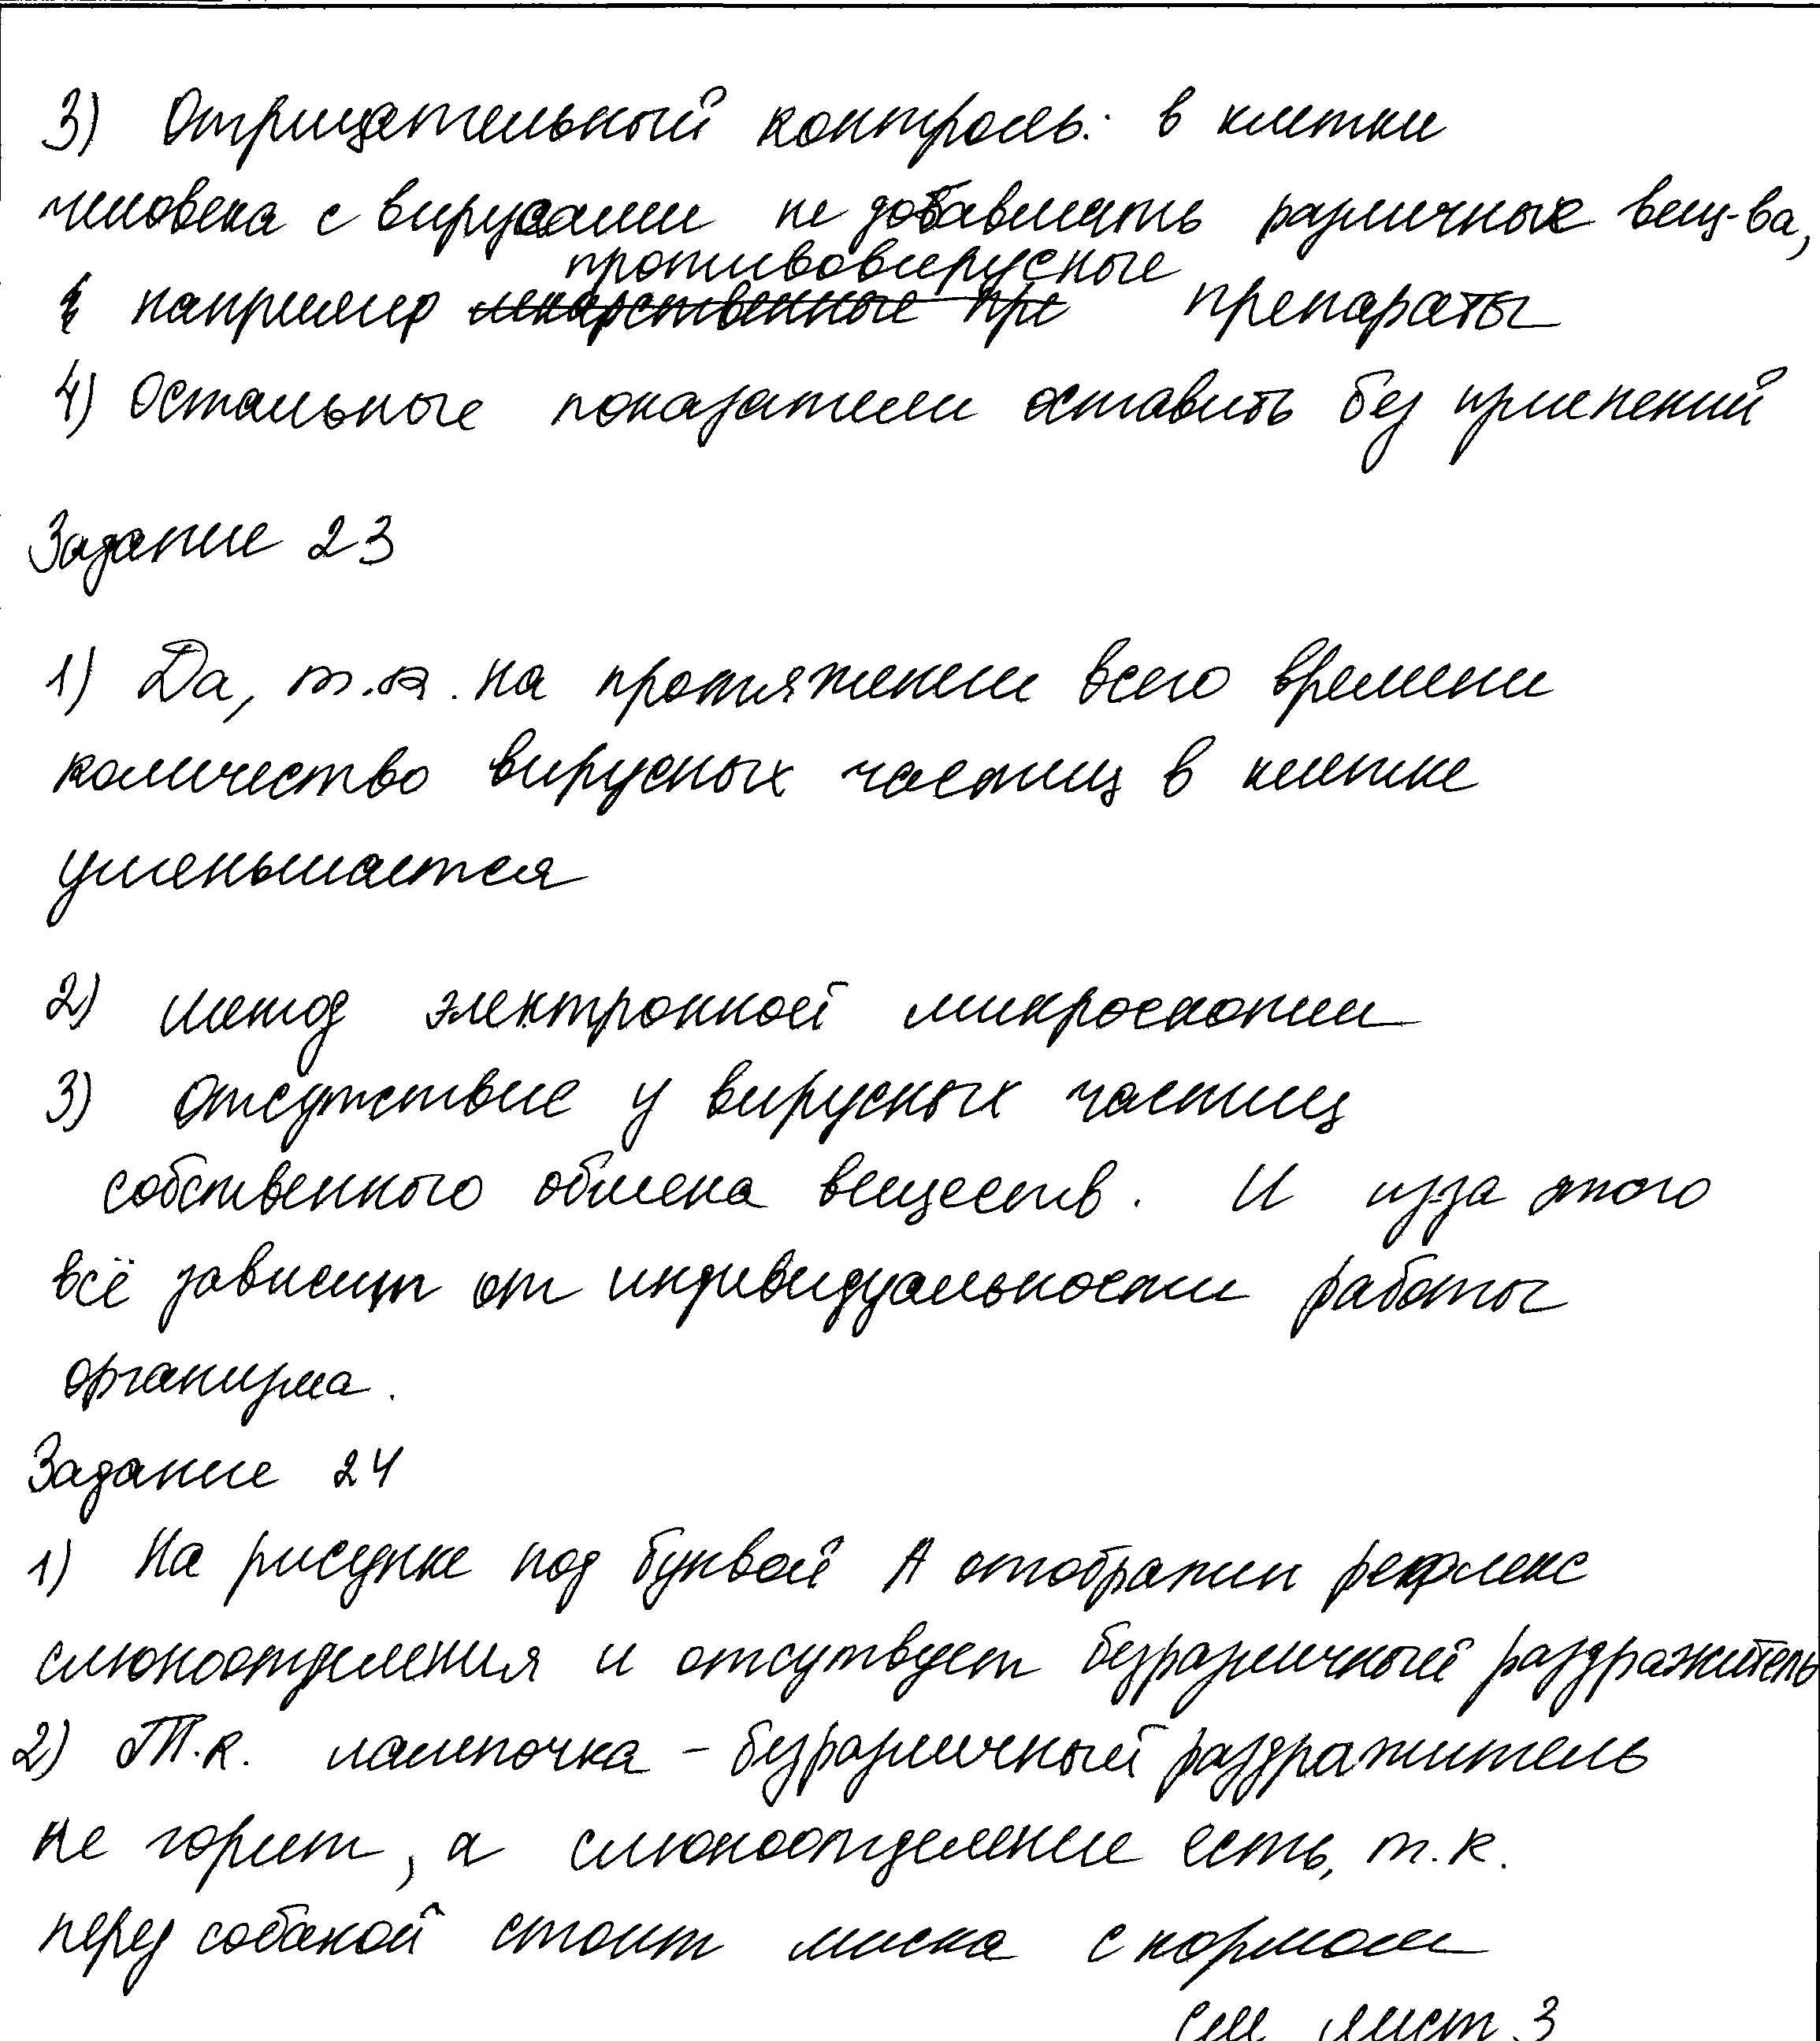 3) Отрицательный контроль: в клетки
человека с вирусами не добавлять различные вещ-ва,
противовирусные
например лекарственные пре препараты
4) Остальные показатели оставить без применений
Задание 23
1) Да, т.к. на протяжении всего времени
количество вирусных частиц в клетке
уменьшается
2) Метод электронной микроскопии
3) Отсутствие у вирусных частиц
собственного обмена веществ. И из-за этого
всё зависит от индивидуальности работы
организма.
Задание 24
1) На рисунке под буквой А отображен рефлекс
слюноотделения и отсутвует безразличный раздражитель
2) Т.к. лампочка - безразличный раздражитель
не горит, а слюноотделение есть, т.к.
перед собакой стоит миска с кормом
см лист 3